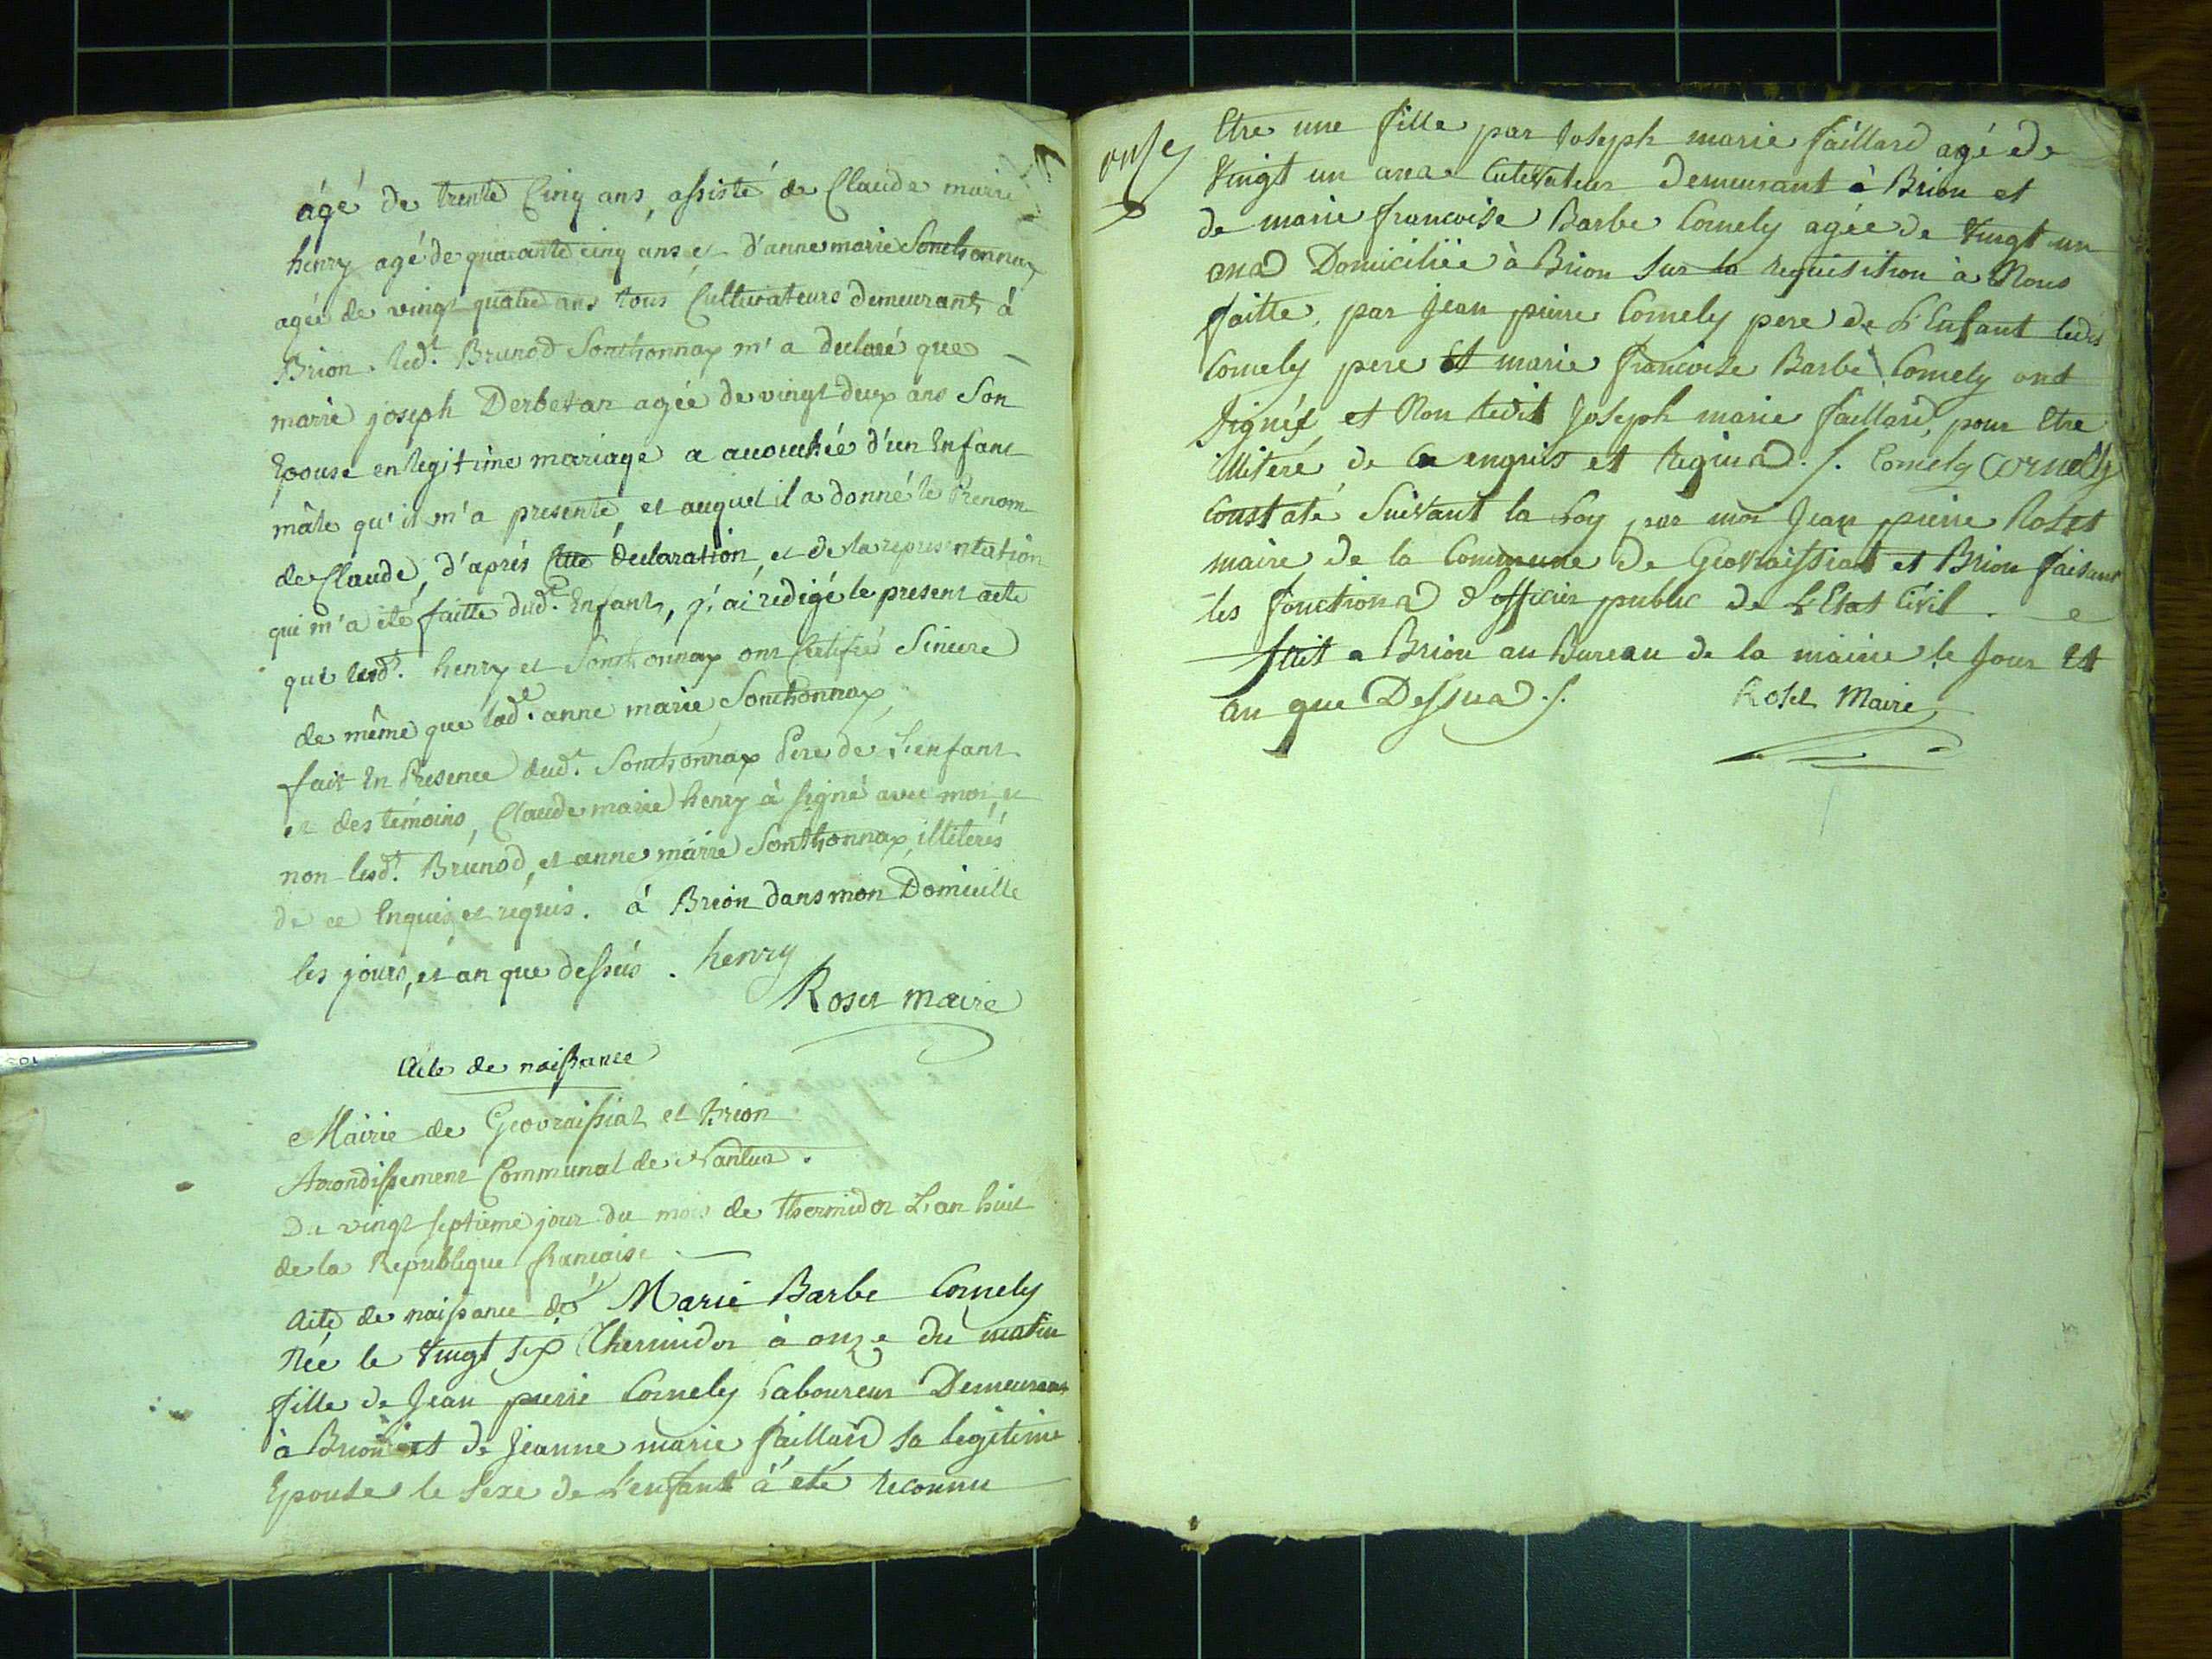 âgé de trente Cinq ans, assisté de Claude marie
henry agé de quarante cinq ans et d'anne marie Sonthonnax
agée de vingt quatre ans tous Cultivateurs demeurants à
Brion. led.t Brunod Sonthonnax m'a declaré que
marie joseph Derbetan agée de vingt deux ans Son
Epouse en legitime mariage a accouchée d'un Enfant
mâle qu'il m'a presenté, et auquel il a donné le Prenom
de Claude, d'aprés Cette declaration, et de la representation
qui m'a été faitte dud.t Enfant, j'ai redigé le present acte
que lesd.t henry et Sonthonnax ont Certifié Sincere
de même que lad.e anne marie Sonthonnax
fait En Presence dud.t Sonthonnax Pere de L'enfant
et des témoins, Claude marie henry à signé avec moi, et
non lesd.t Brunod, et anne marie Sonthonnax, illiterés
de ce Enquis et requis. à Brion dans mon Domicille
les jours, et an que dessus. henry
Roset maire
Acte de naissance
Mairie de Geovraissiat et Brion
Arrondissement Communal de Nantua.
Du vingt septieme jour du mois de thermidor L'an huit
de la Republique francaise
Acte de naissance de Marie Barbe Cornely
Née le vingt six Thermidor à onze du matin
fille de Jean pierre Cornely Laboureur Demeurant
à Brion et de Jeanne marie faillard sa legitime
Epouse le sexe de l'enfant à eté reconnu
onze
Etre une fille par Joseph marie faillard agé de
Vingt un ans Cultivateur Demeurant à Brion et
de marie francoise Barbe Cornely agée de Vingt un
ans Domiciliée à Brion Sur la requisition à Nous
faitte, par Jean pierre Cornely pere de L'Enfant ledit
Cornely pere et marie francoise Barbe Cornely ont
signés, et Non ledit Joseph marie faillard, pour Etre
illiteré, de Ce enquis et Requis. /. Cornely Cornely
Constaté Suivant la Loy par moi Jean pierre Roset
maire de la Commune de Geovraissiat et Brion faisant
les fonctions d'officier public de L'Etat Civil.
fait a Brion au Bureau de la mairie le Jour et
an que Dessus. /. Roset Maire